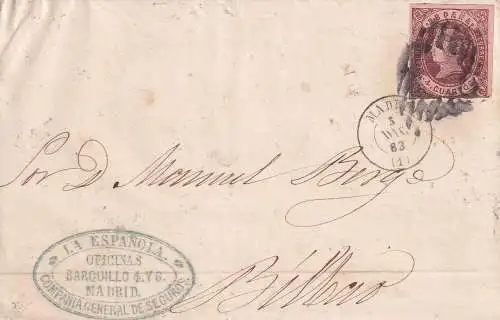 4 CUARTOS
MADRID
5
63
(1)
Sor D Manuel
Bilbao
LA ESPAÑOLA.
OFICINAS
BARQUILLO 4. Y 6.
MADRID.
COMPAÑIA GENERAL DE SEGUROS